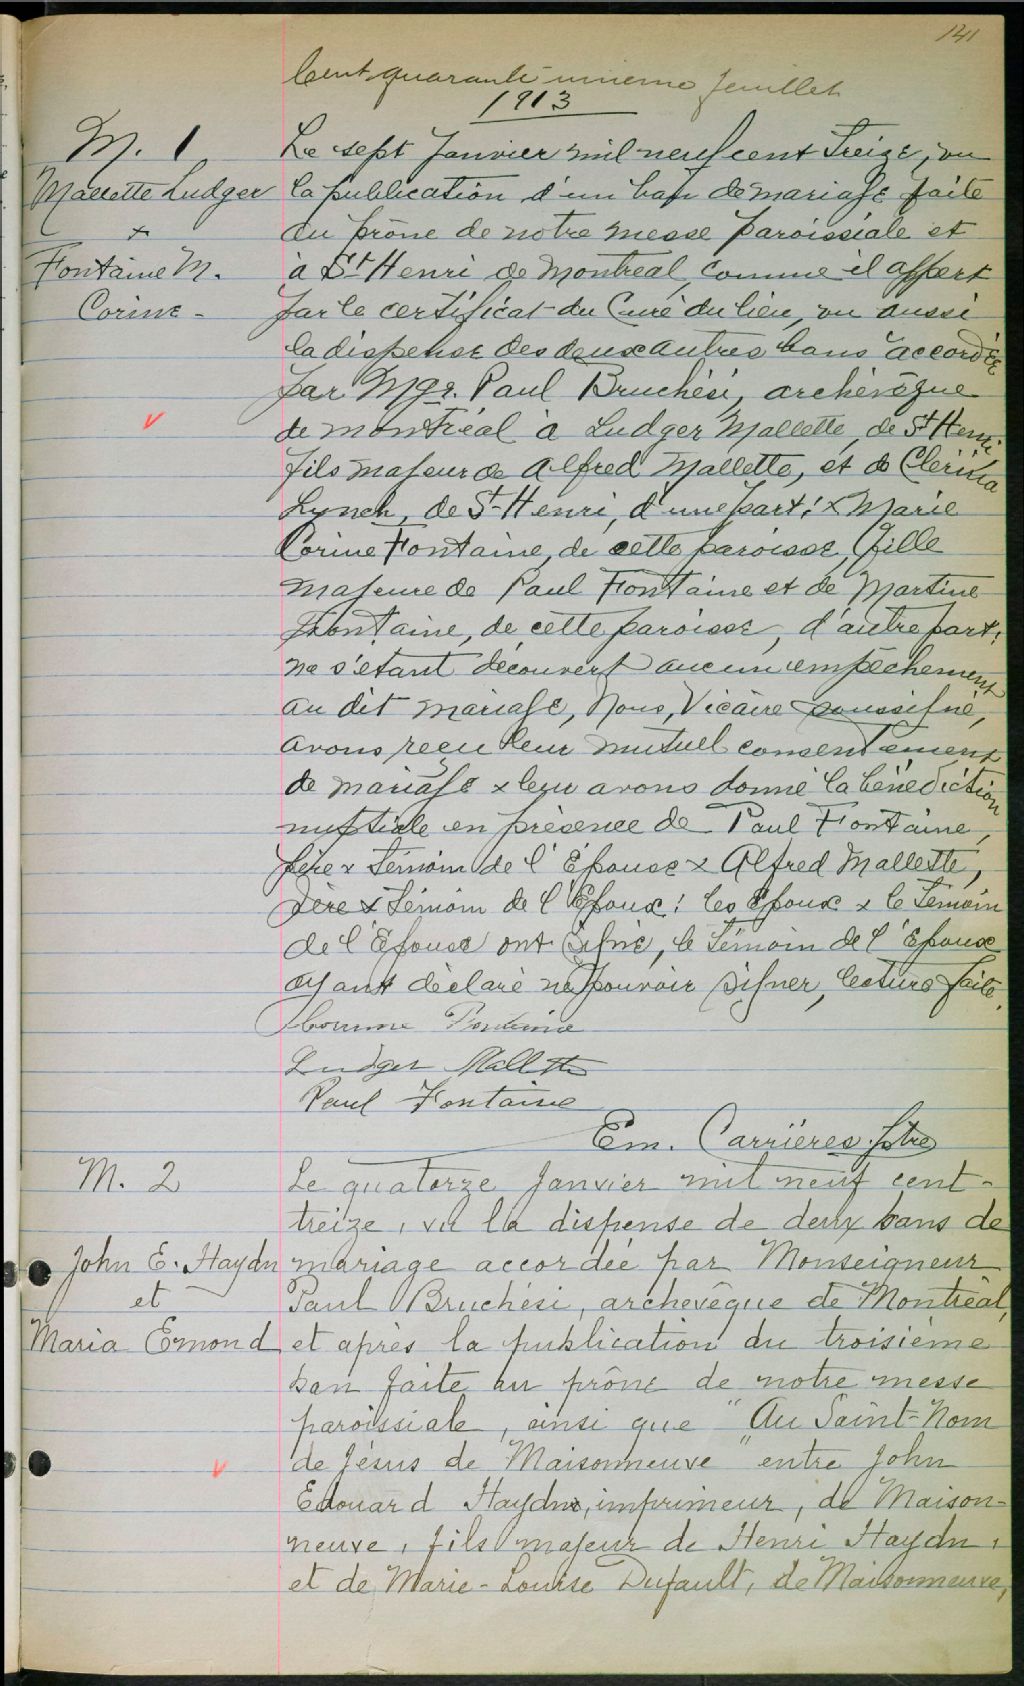 141
Cent quarante-unième feuillet
1913
M. 1
Mallette Ludger
+
Fontaine M.
Corine -
Le sept Janvier mil neuf cent treize, vu
la publication d'un ban de mariage faite
au prône de notre messe paroissiale et
à St Henri de Montreal, comme il appert
par le certificat du Curé du lieu, vu aussi
la dispense des deux autres bans accordée
par Mgr. Paul Bruchési, archévêque
de Montréal à Ludger Mallette, de St Henri
fils majeur de Alfred Mallette, et de
Lynch, de St Henri, d'une part; x Marie
Corine Fontaine, de cette paroisse, fille
majeure de Paul Fontaine et de Martine
Fontaine, de cette paroisse, d'autre part;
ne s'étant découvert aucun empêchement
au dit mariage, Nous, Vicaire soussigné,
avons reçu leur mutuel consentement
de mariage x leur avons donné la bénédiction
nuptiale en présence de Paul Fontaine,
père x témoin de l'Épouse x Alfred Mallette,
père x témoin de l'Époux; les Époux x le témoin
de l'Épouse ont signé, le témoin de l'Époux
ayant déclaré ne pouvoir signer, lecture faite.
Corinne Fontaine
Ludger Mallette
Paul Fontaine
Em. Carrières ptre
M. 2
John E. Haydn
et
Maria Emond
Le quatorze Janvier mil neuf cent-
treize, vu la dispense de deux bans de
mariage accordée par Monseigneur
Paul Bruchési, archevêque de Montréal,
et après la publication du troisième
ban faite au prône de notre messe
paroissiale, ainsi que "Au Saint-Nom
de Jésus de Maisonneuve" entre John
Edouard Haydn, imprimeur, de Maison-
neuve, fils majeur de Henri Haydn,
et de Marie-Louise Dufault, de Maisonneuve,